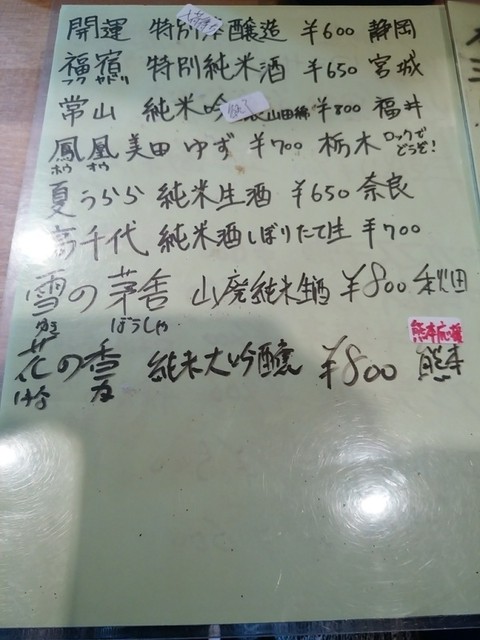 開運 特別本醸造 ¥600 静岡
福宿 特別純米酒 ¥650 宮城
フク ヤドリ
常山 純米吟 山田錦 ¥800 福井
鳳凰美田 ゆず ¥700 栃木 ロックで
どうぞ!
ホウ オウ
夏うらら 純米生酒 ¥650 奈良
高千代 純米酒しぼりたて生 ¥700
雪の茅舎 山廃純米生酒 ¥800 秋田
ゆき ぼうしゃ
熊本応援
花の香 純米大吟醸 ¥800 熊本
はな か